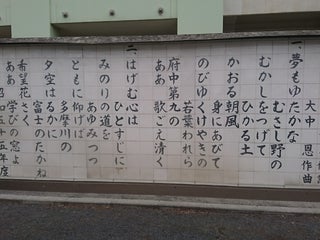 大中 恩 作曲
一、夢もゆたかな
むさし野の
むかしをつげて
ひかる土
かおる朝風
身にあびて
のびゆくけやきの
若葉われら
府中第九の
ああ 歌ごえ清く
二、はげむ心は
ひとすじに
みのりの道を
あゆみつつ
ともに仰げば
多摩川の
夕空はるかに
富士のたかね
希望花さく
ああ 学びの窓よ
昭和五十五年度